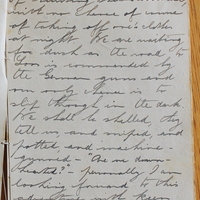 with no chance of
of taking off one's clothes
at night. We are waiting
for dusk as the road to
Loos is commanded by
the German guns and
our only chance is to
slip through in the dark
We shall be shelled, they
tell us, and sniped, and
potted, and machine-
gunned - "Are we down-
hearted?" - personally I am
looking forward to this
with keen